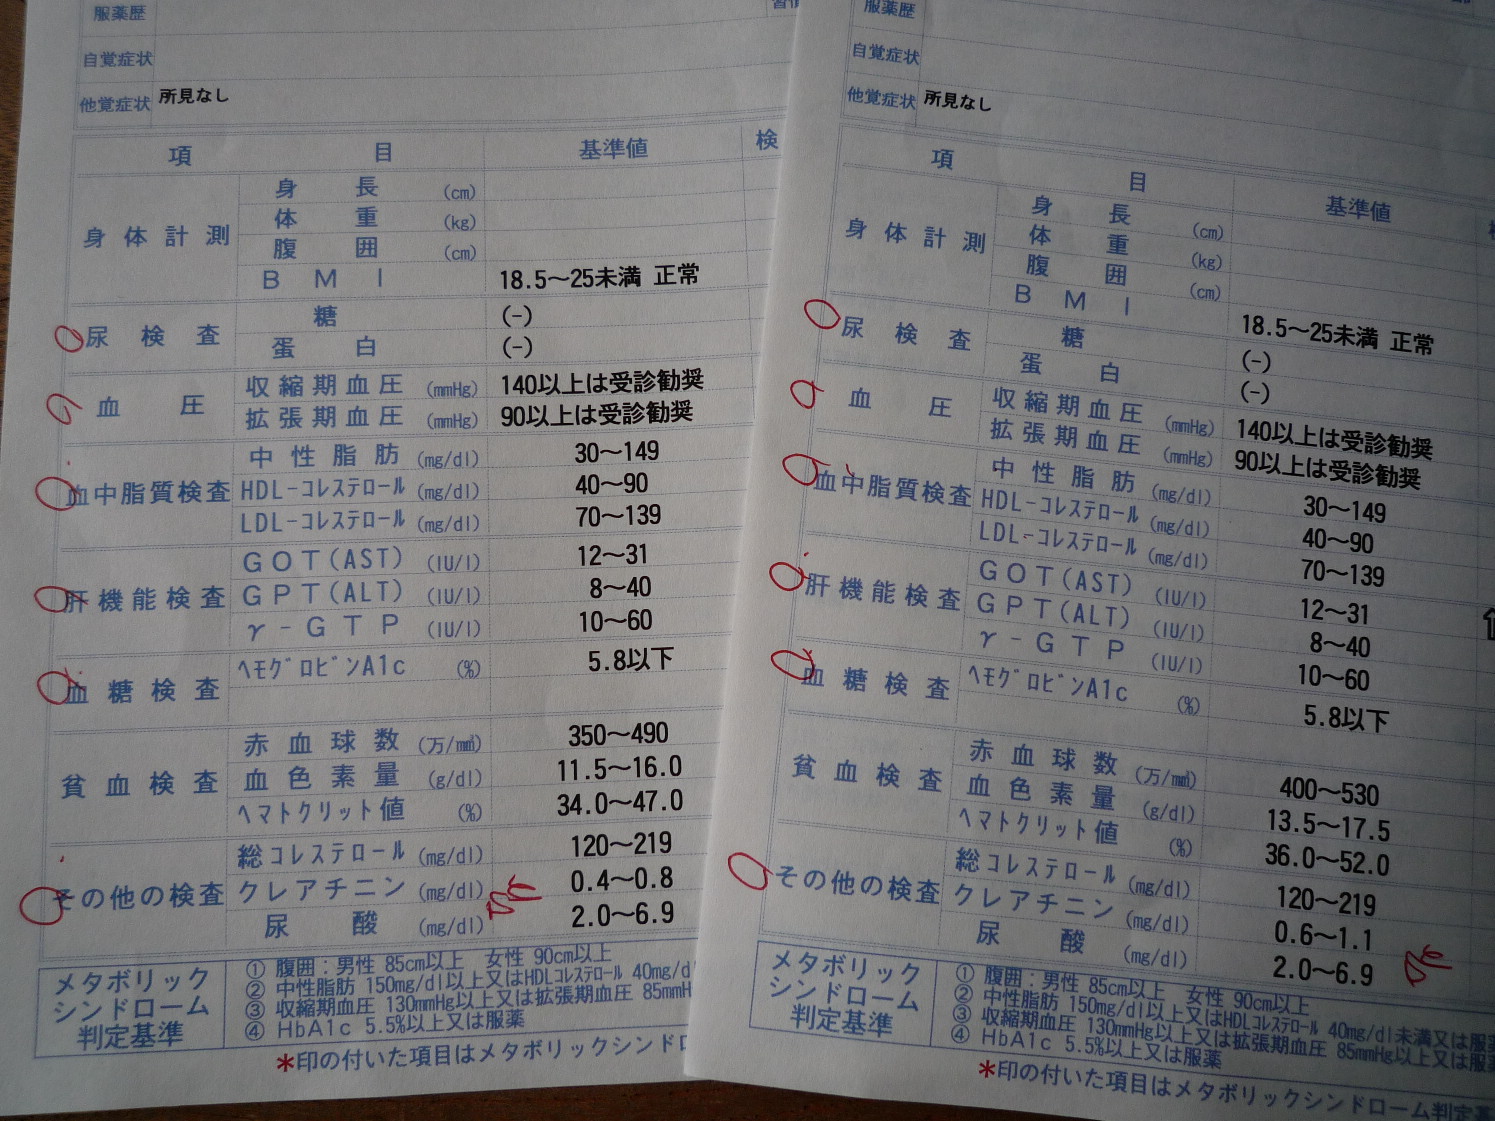 服薬歴
自覚症状
他覚症状 所見なし
項 目 基準値 検
身体計測 身長 (cm)
体重 (kg)
腹囲 (cm)
BMI 18.5～25未満 正常
尿検査 糖 (-)
蛋白 (-)
血圧 収縮期血圧 (mmHg) 140以上は受診勧奨
拡張期血圧 (mmHg) 90以上は受診勧奨
血中脂質検査 中性脂肪 (mg/dl) 30～149
HDL-コレステロール (mg/dl) 40～90
LDL-コレステロール (mg/dl) 70～139
肝機能検査 GOT(AST) (IU/l) 12～31
GPT(ALT) (IU/l) 8～40
γ-GTP (IU/l) 10～60
血糖検査 ヘモグロビンA1c (%) 5.8以下
貧血検査 赤血球数 (万/㎣) 350～490
血色素量 (g/dl) 11.5～16.0
ヘマトクリット値 (%) 34.0～47.0
その他の検査 総コレステロール (mg/dl) 120～219
クレアチニン (mg/dl) 0.4～0.8
尿酸 (mg/dl) 2.0～6.9
メタボリックシンドローム判定基準
① 腹囲：男性 85cm以上 女性 90cm以上
② 中性脂肪 150mg/dl以上又はHDLコレステロール 40mg/d
③ 収縮期血圧 130mmHg以上又は拡張期血圧 85mmH
④ HbA1c 5.5%以上又は服薬
*印の付いた項目はメタボリックシンドロ
服薬歴
自覚症状
他覚症状 所見なし
項 目 基準値
身体計測 身長 (cm)
体重 (kg)
腹囲 (cm)
BMI 18.5～25未満 正常
尿検査 糖 (-)
蛋白 (-)
血圧 収縮期血圧 (mmHg) 140以上は受診勧奨
拡張期血圧 (mmHg) 90以上は受診勧奨
血中脂質検査 中性脂肪 (mg/dl) 30～149
HDL-コレステロール (mg/dl) 40～90
LDL-コレステロール (mg/dl) 70～139
肝機能検査 GOT(AST) (IU/l) 12～31
GPT(ALT) (IU/l) 8～40
γ-GTP (IU/l) 10～60
血糖検査 ヘモグロビンA1c (%) 5.8以下
貧血検査 赤血球数 (万/㎣) 400～530
血色素量 (g/dl) 13.5～17.5
ヘマトクリット値 (%) 36.0～52.0
その他の検査 総コレステロール (mg/dl) 120～219
クレアチニン (mg/dl) 0.6～1.1
尿酸 (mg/dl) 2.0～6.9
メタボリックシンドローム判定基準
① 腹囲：男性 85cm以上 女性 90cm以上
② 中性脂肪 150mg/dl以上又はHDLコレステロール 40mg/dl未満又は服
③ 収縮期血圧 130mmHg以上又は拡張期血圧 85mmHg以上又は服
④ HbA1c 5.5%以上又は服薬
*印の付いた項目はメタボリックシンドローム判定基